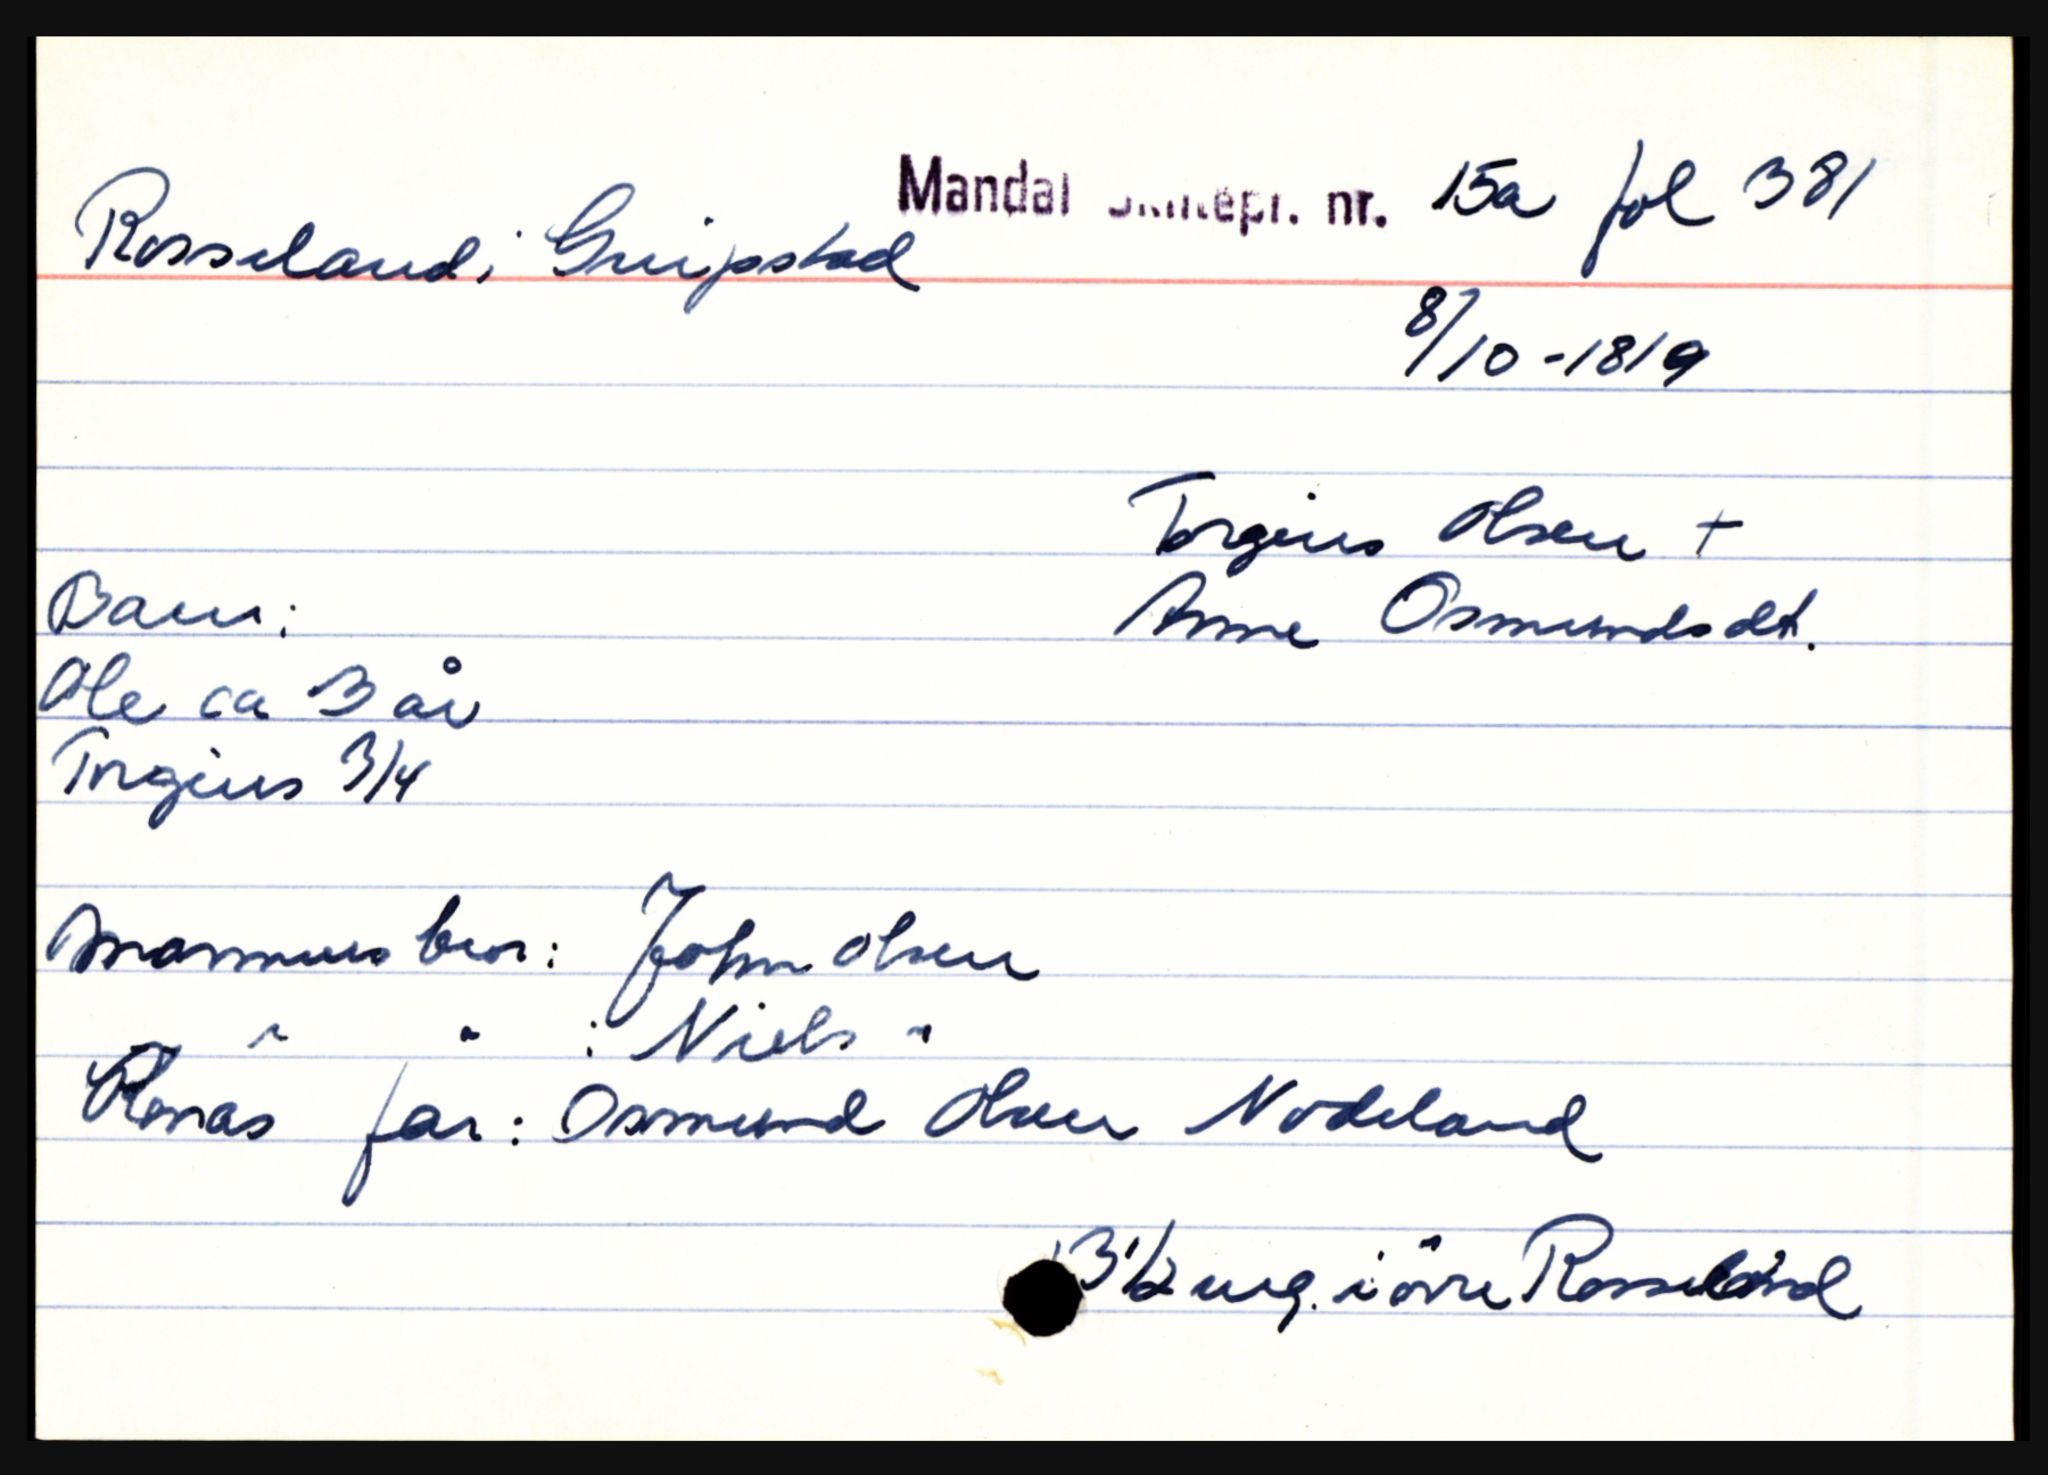 Mandal Skiftepr. nr. 15a fol 381
Rosseland, Greipstad
8/10-1819
Torgius Olsen +
Anne Osmundsdt.
Barn:
Ole ca 3 år
Torgius 3/4
Mannens bror: John Olsen
" " : Niels "
Konas far: Osmund Olsen Nodeland
3 1/2 eng. i övre Rosseland